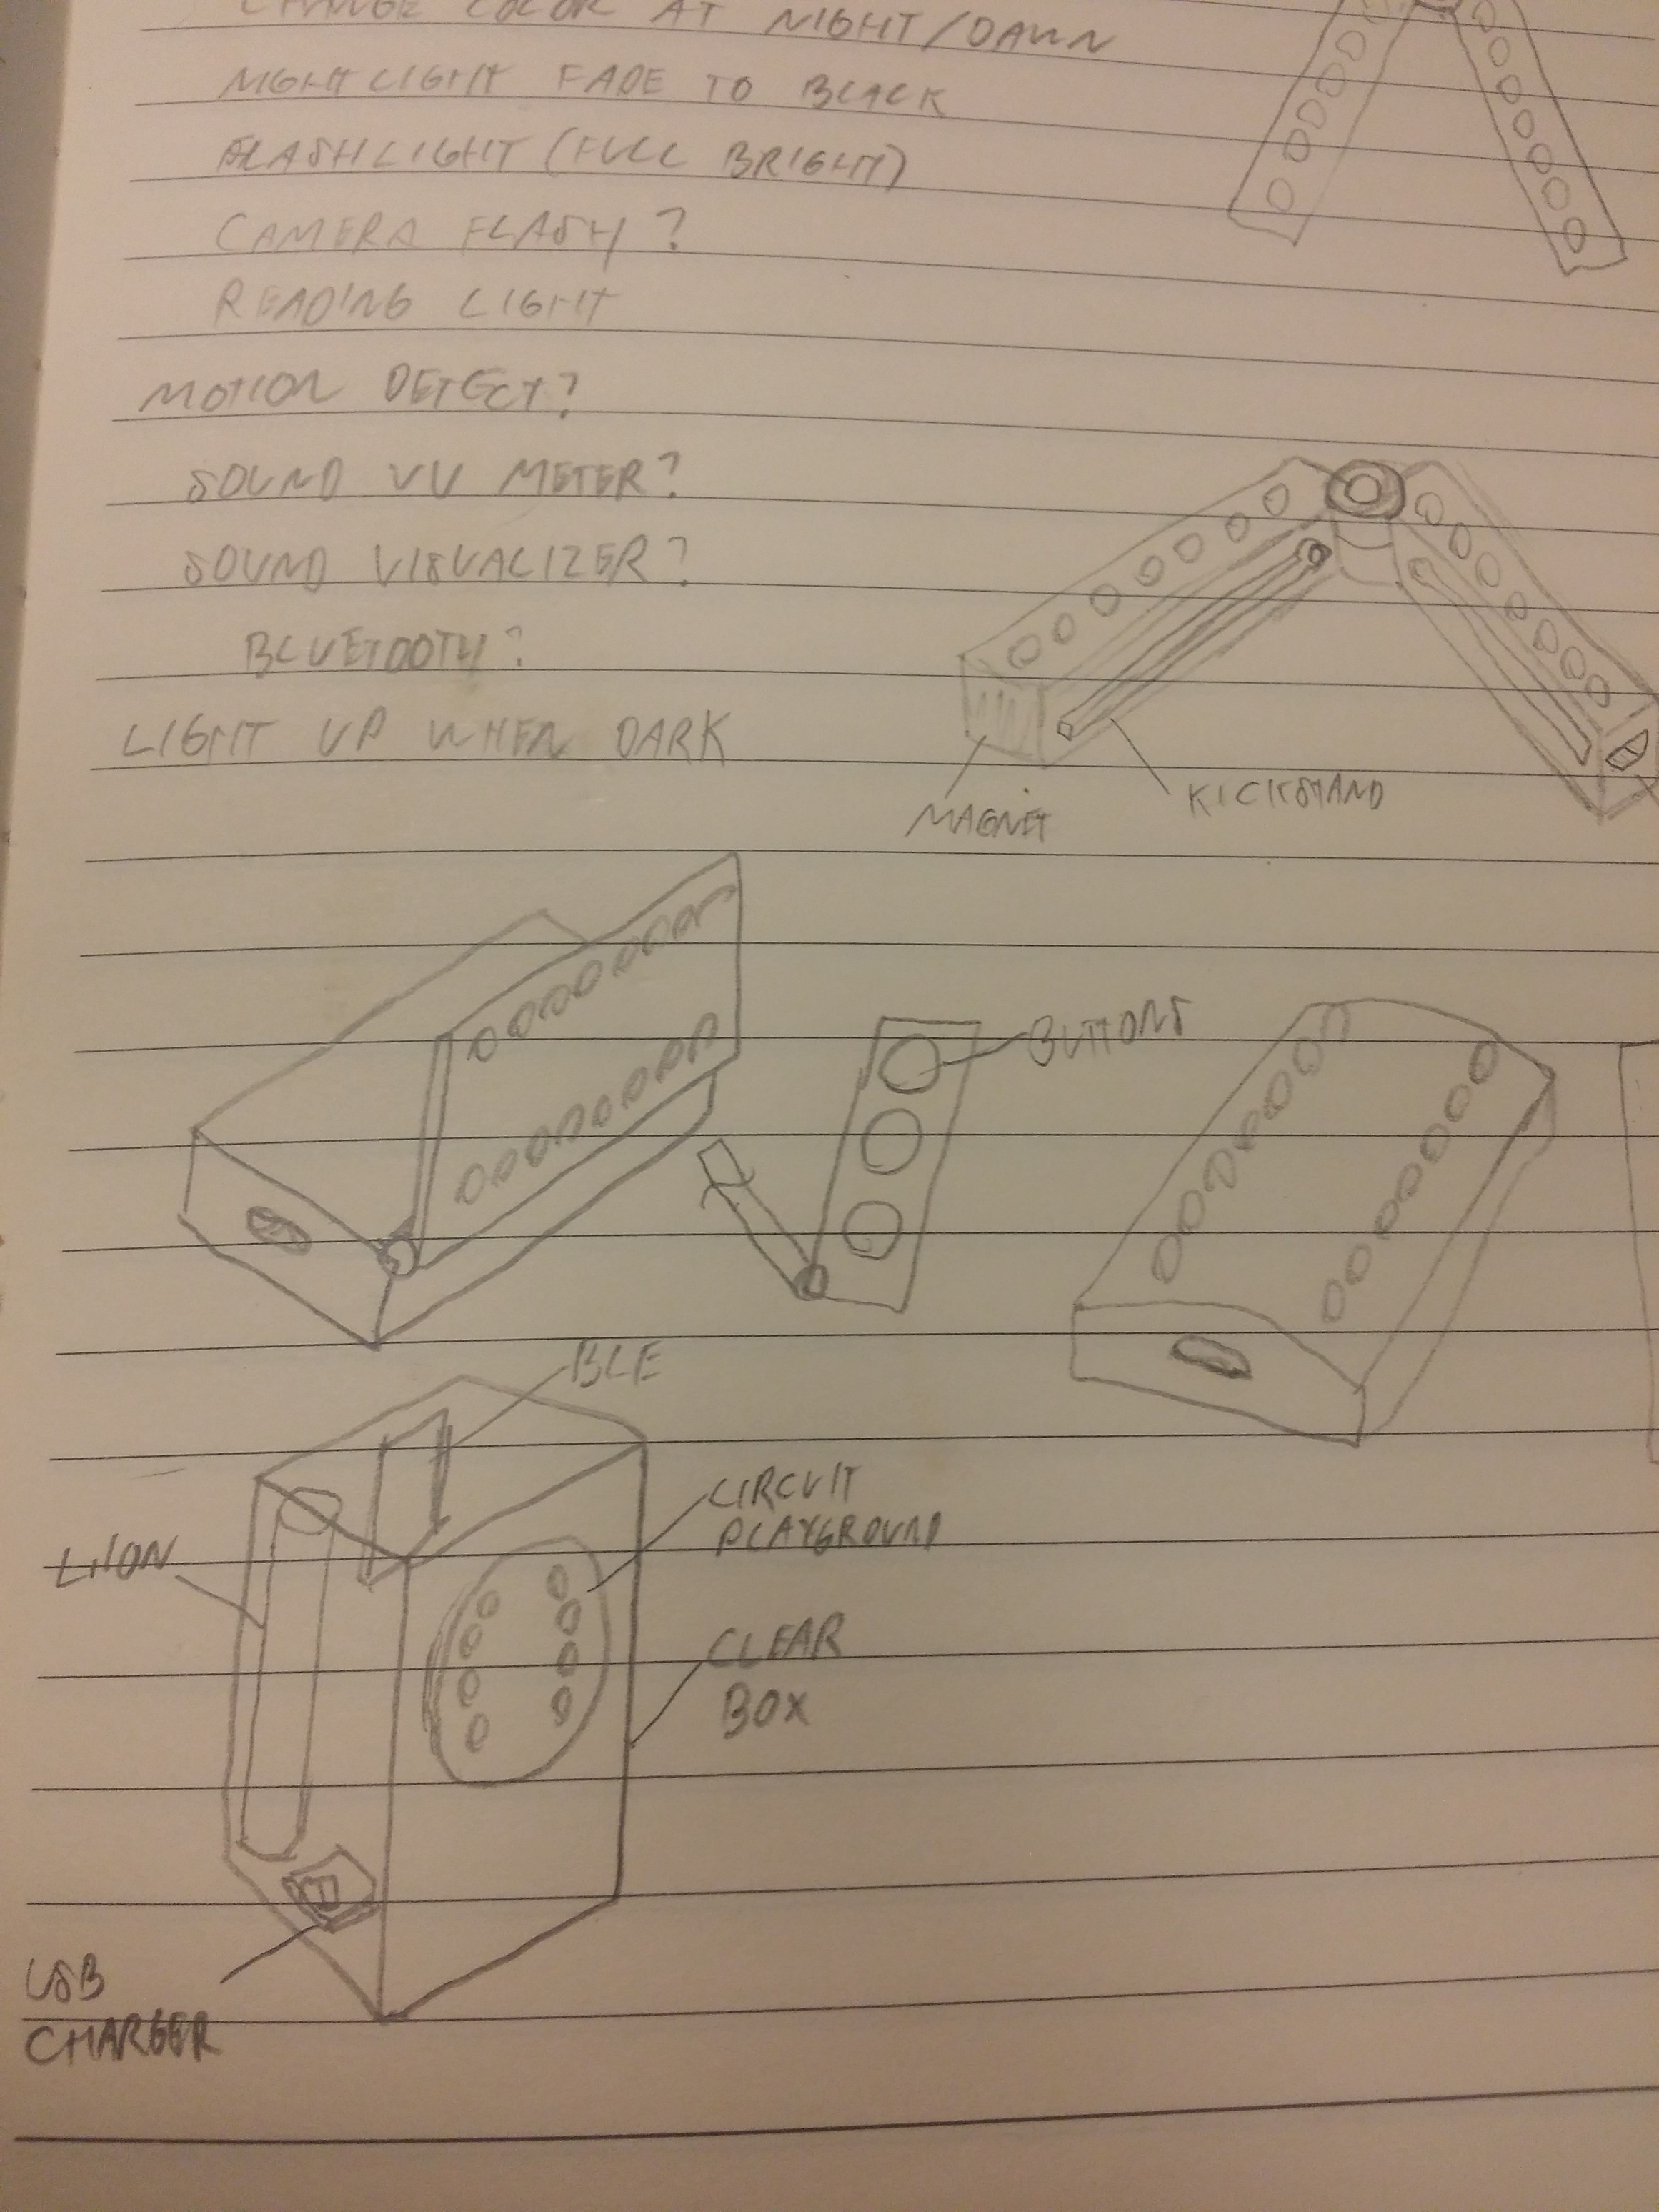 CHANGE COLOR AT NIGHT/DAWN
NIGHTLIGHT FADE TO BLACK
FLASHLIGHT (FULL BRIGHT)
CAMERA FLASH?
READING LIGHT
MOTION DETECT?
SOUND VU METER?
SOUND VISUALIZER?
BLUETOOTH?
LIGHT UP WHEN DARK
MAGNET
KICKSTAND
BUTTONS
BLE
CIRCUIT
PLAYGROUND
LIION
CLEAR
BOX
USB
CHARGER